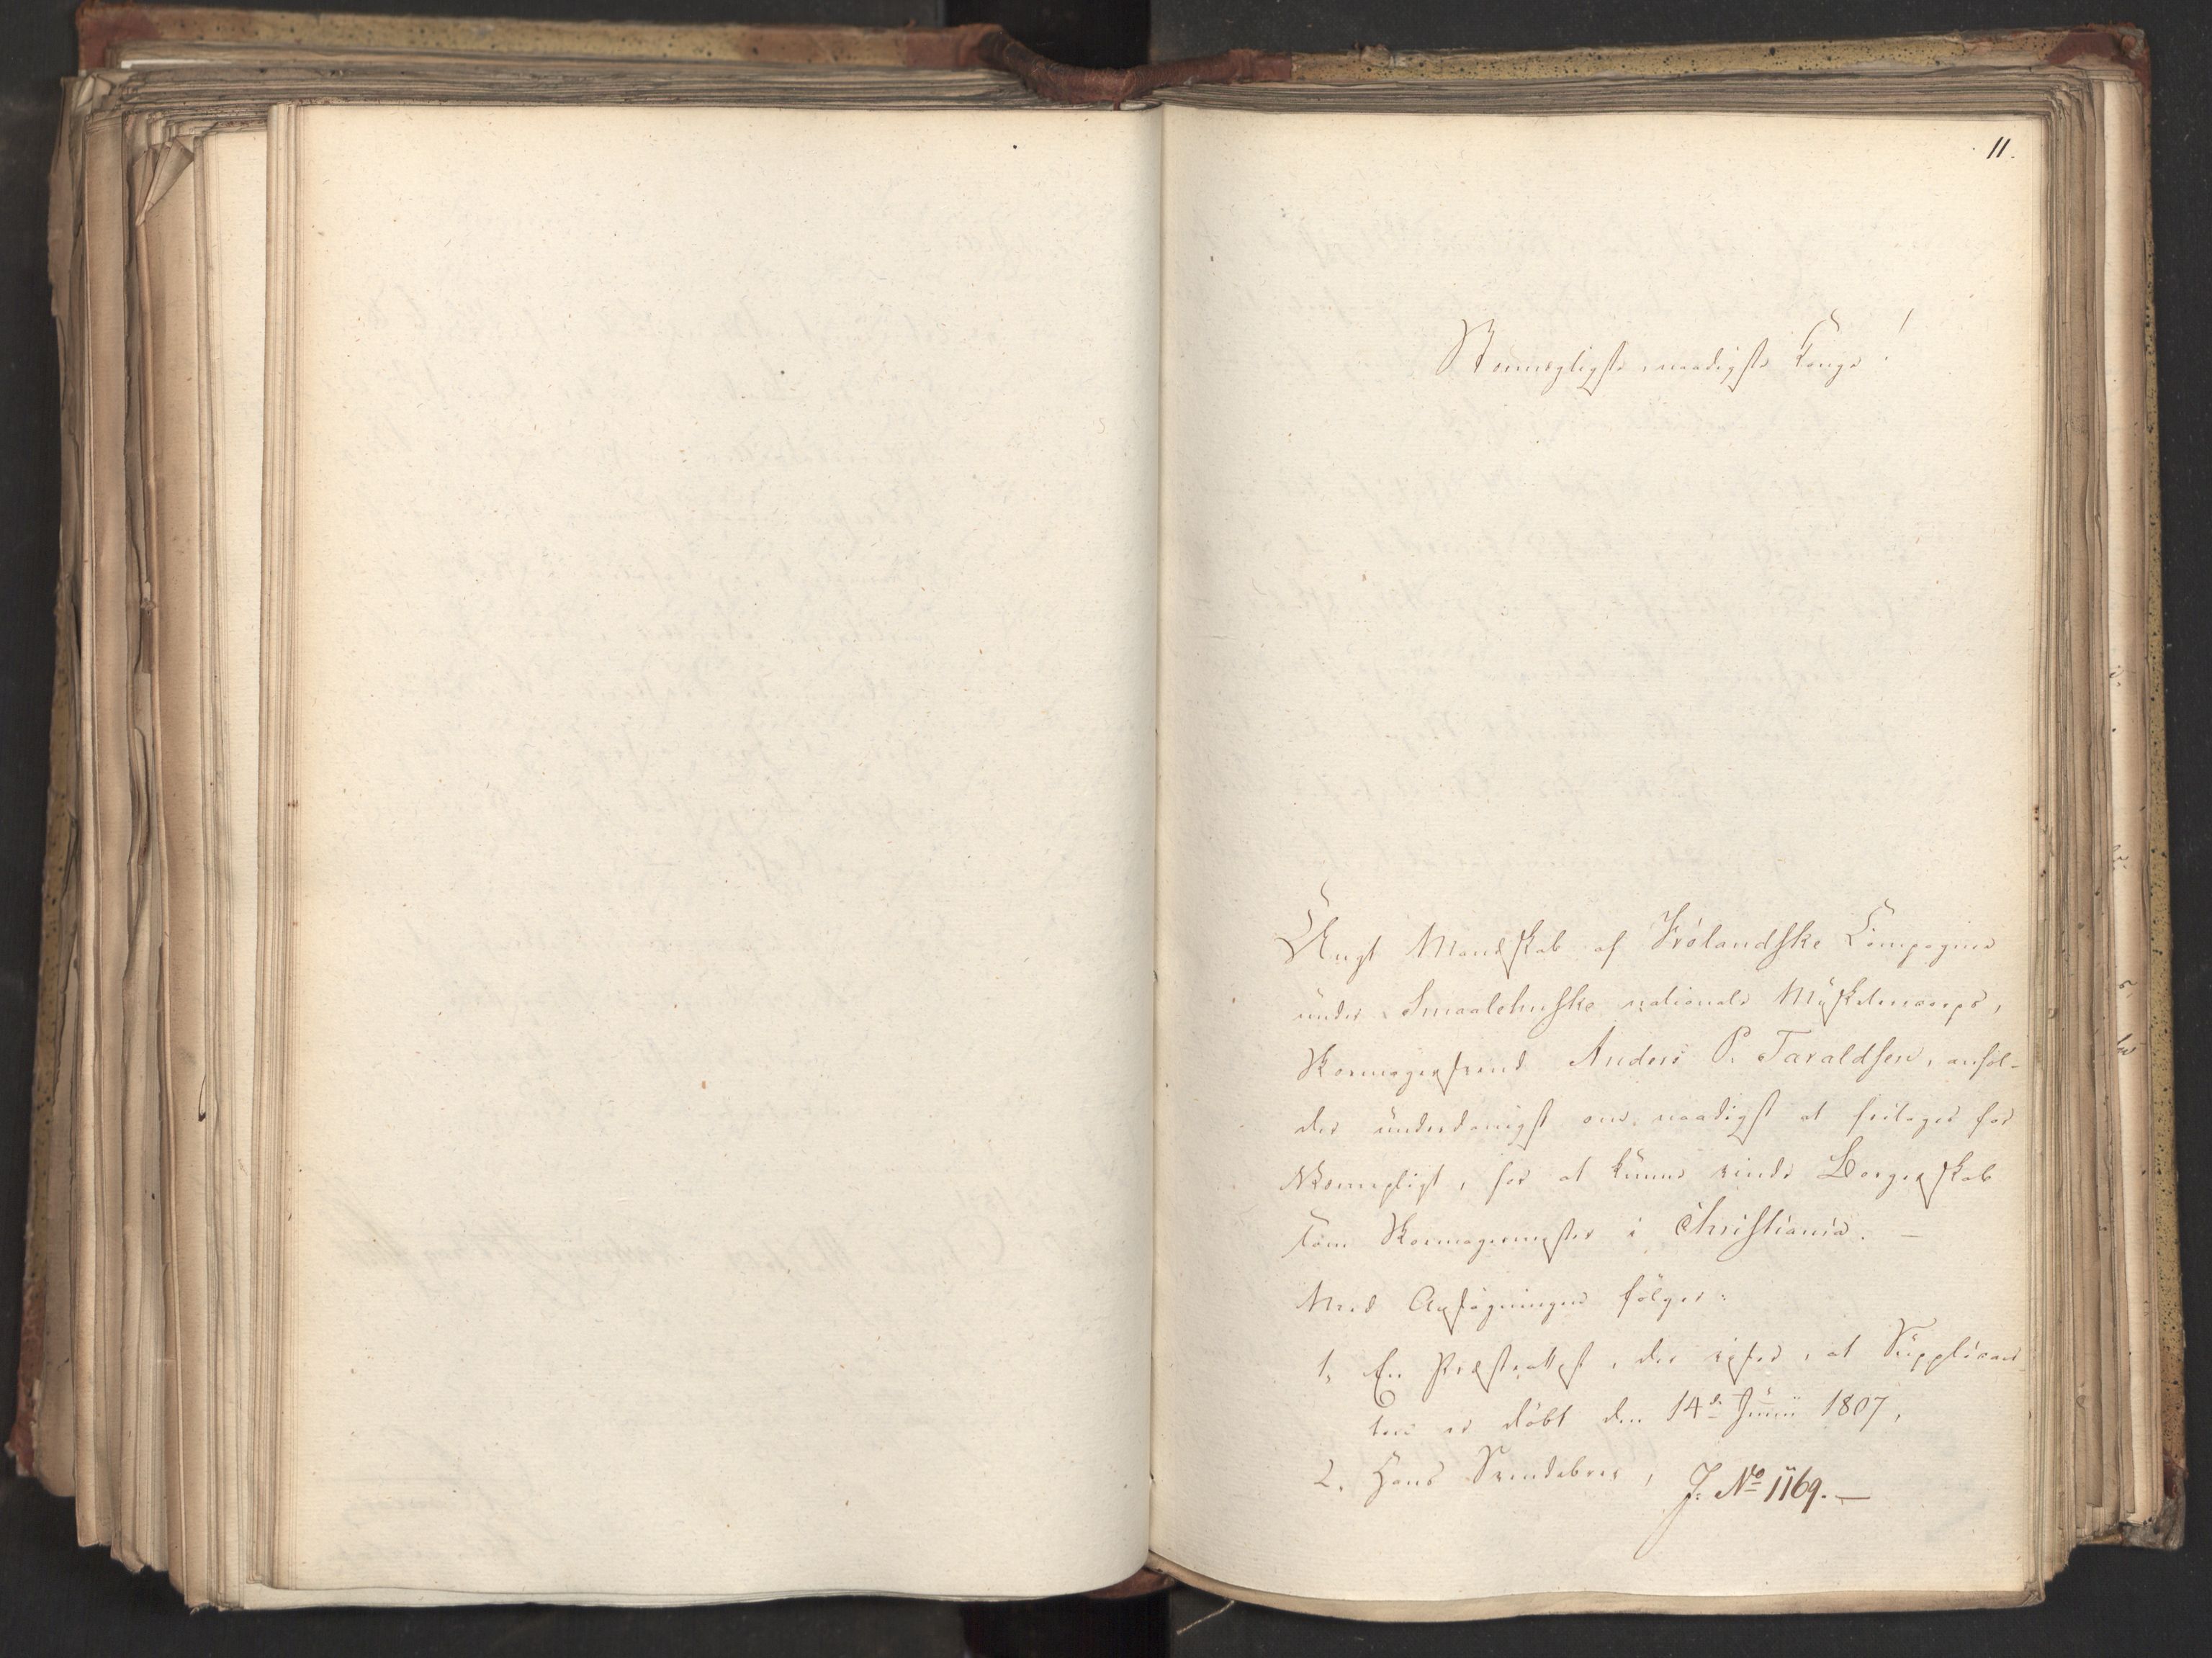 11.
Stormægtigste, naadigste Konge!
Ungt Mandskab af Frølandske Compagnie
under Smaalehnske nationale Musketeercorps,
Skomagersvend Anders P. Taraldsen, ansø-
der underdanigst om, naadigst at fritages for
Værnepligt, for at kunne vinde Borgerskab
som Skomagermester i Christiania. –
Med Ansøgningen følger:
1, En Præsteattest, der viser, at Supplican-
ten er døbt den 14de Junii 1807,
2, Hans Svendebrev,
J: No 1169. –